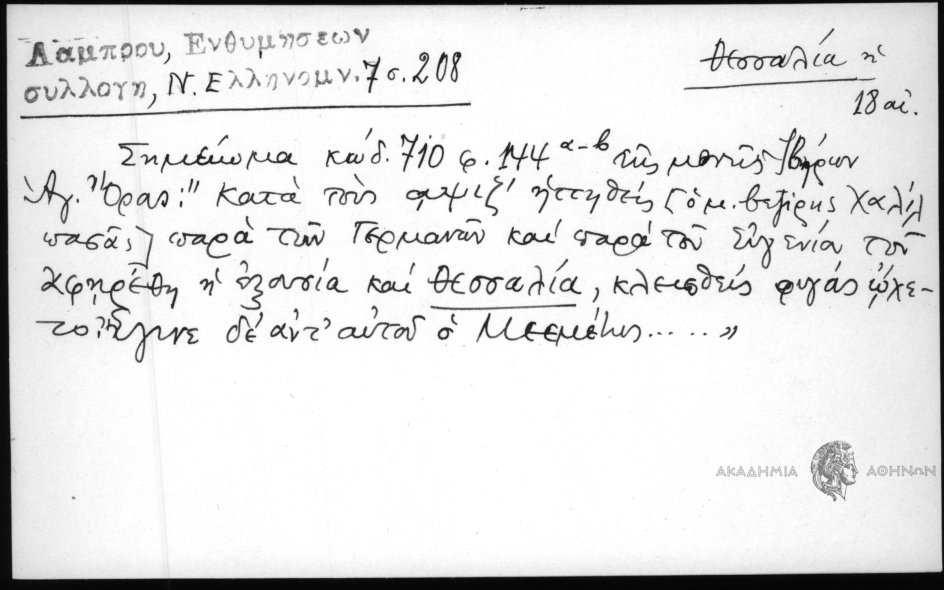 Λάμπρου, Ενθυμησεων
συλλογη, Ν. Ελληνομν. 7 σ. 208
Θεσσαλία ἡ
18 αἰ.
Σημείωμα κώδ. 710 φ. 144 α-b τῆς μονῆς Ἰβήρων
Ἁγ. Ὄρους: "Κατὰ τοὺς αψιζ' ἡττηθείς [ὁ μ. βεζίρης Χαλὶλ
πασᾶς] παρὰ τῶν Γερμανῶν καὶ παρὰ τοῦ Εὐγενία τοῦ
ἀφῃρέθη ἡ ἐξουσία καὶ Θεσσαλία, κλεισθείς φυγάς ᾤχε-
το. Ἔγινε δέ ἀντ' αὐτοῦ ὁ Μεεμέτης ..... »
ΑΚΑΔΗΜΙΑ ΑΘΗΝΩΝ